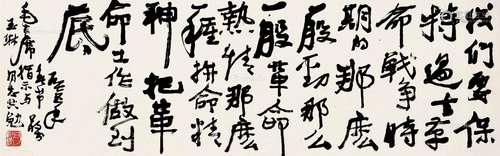 我们要保
持過去革
命战争时
期的那麽
一股劲那么
一股革命
热情那麽
一種拼命精
神把革
命工作做到
底
毛主席指示与
同志共勉